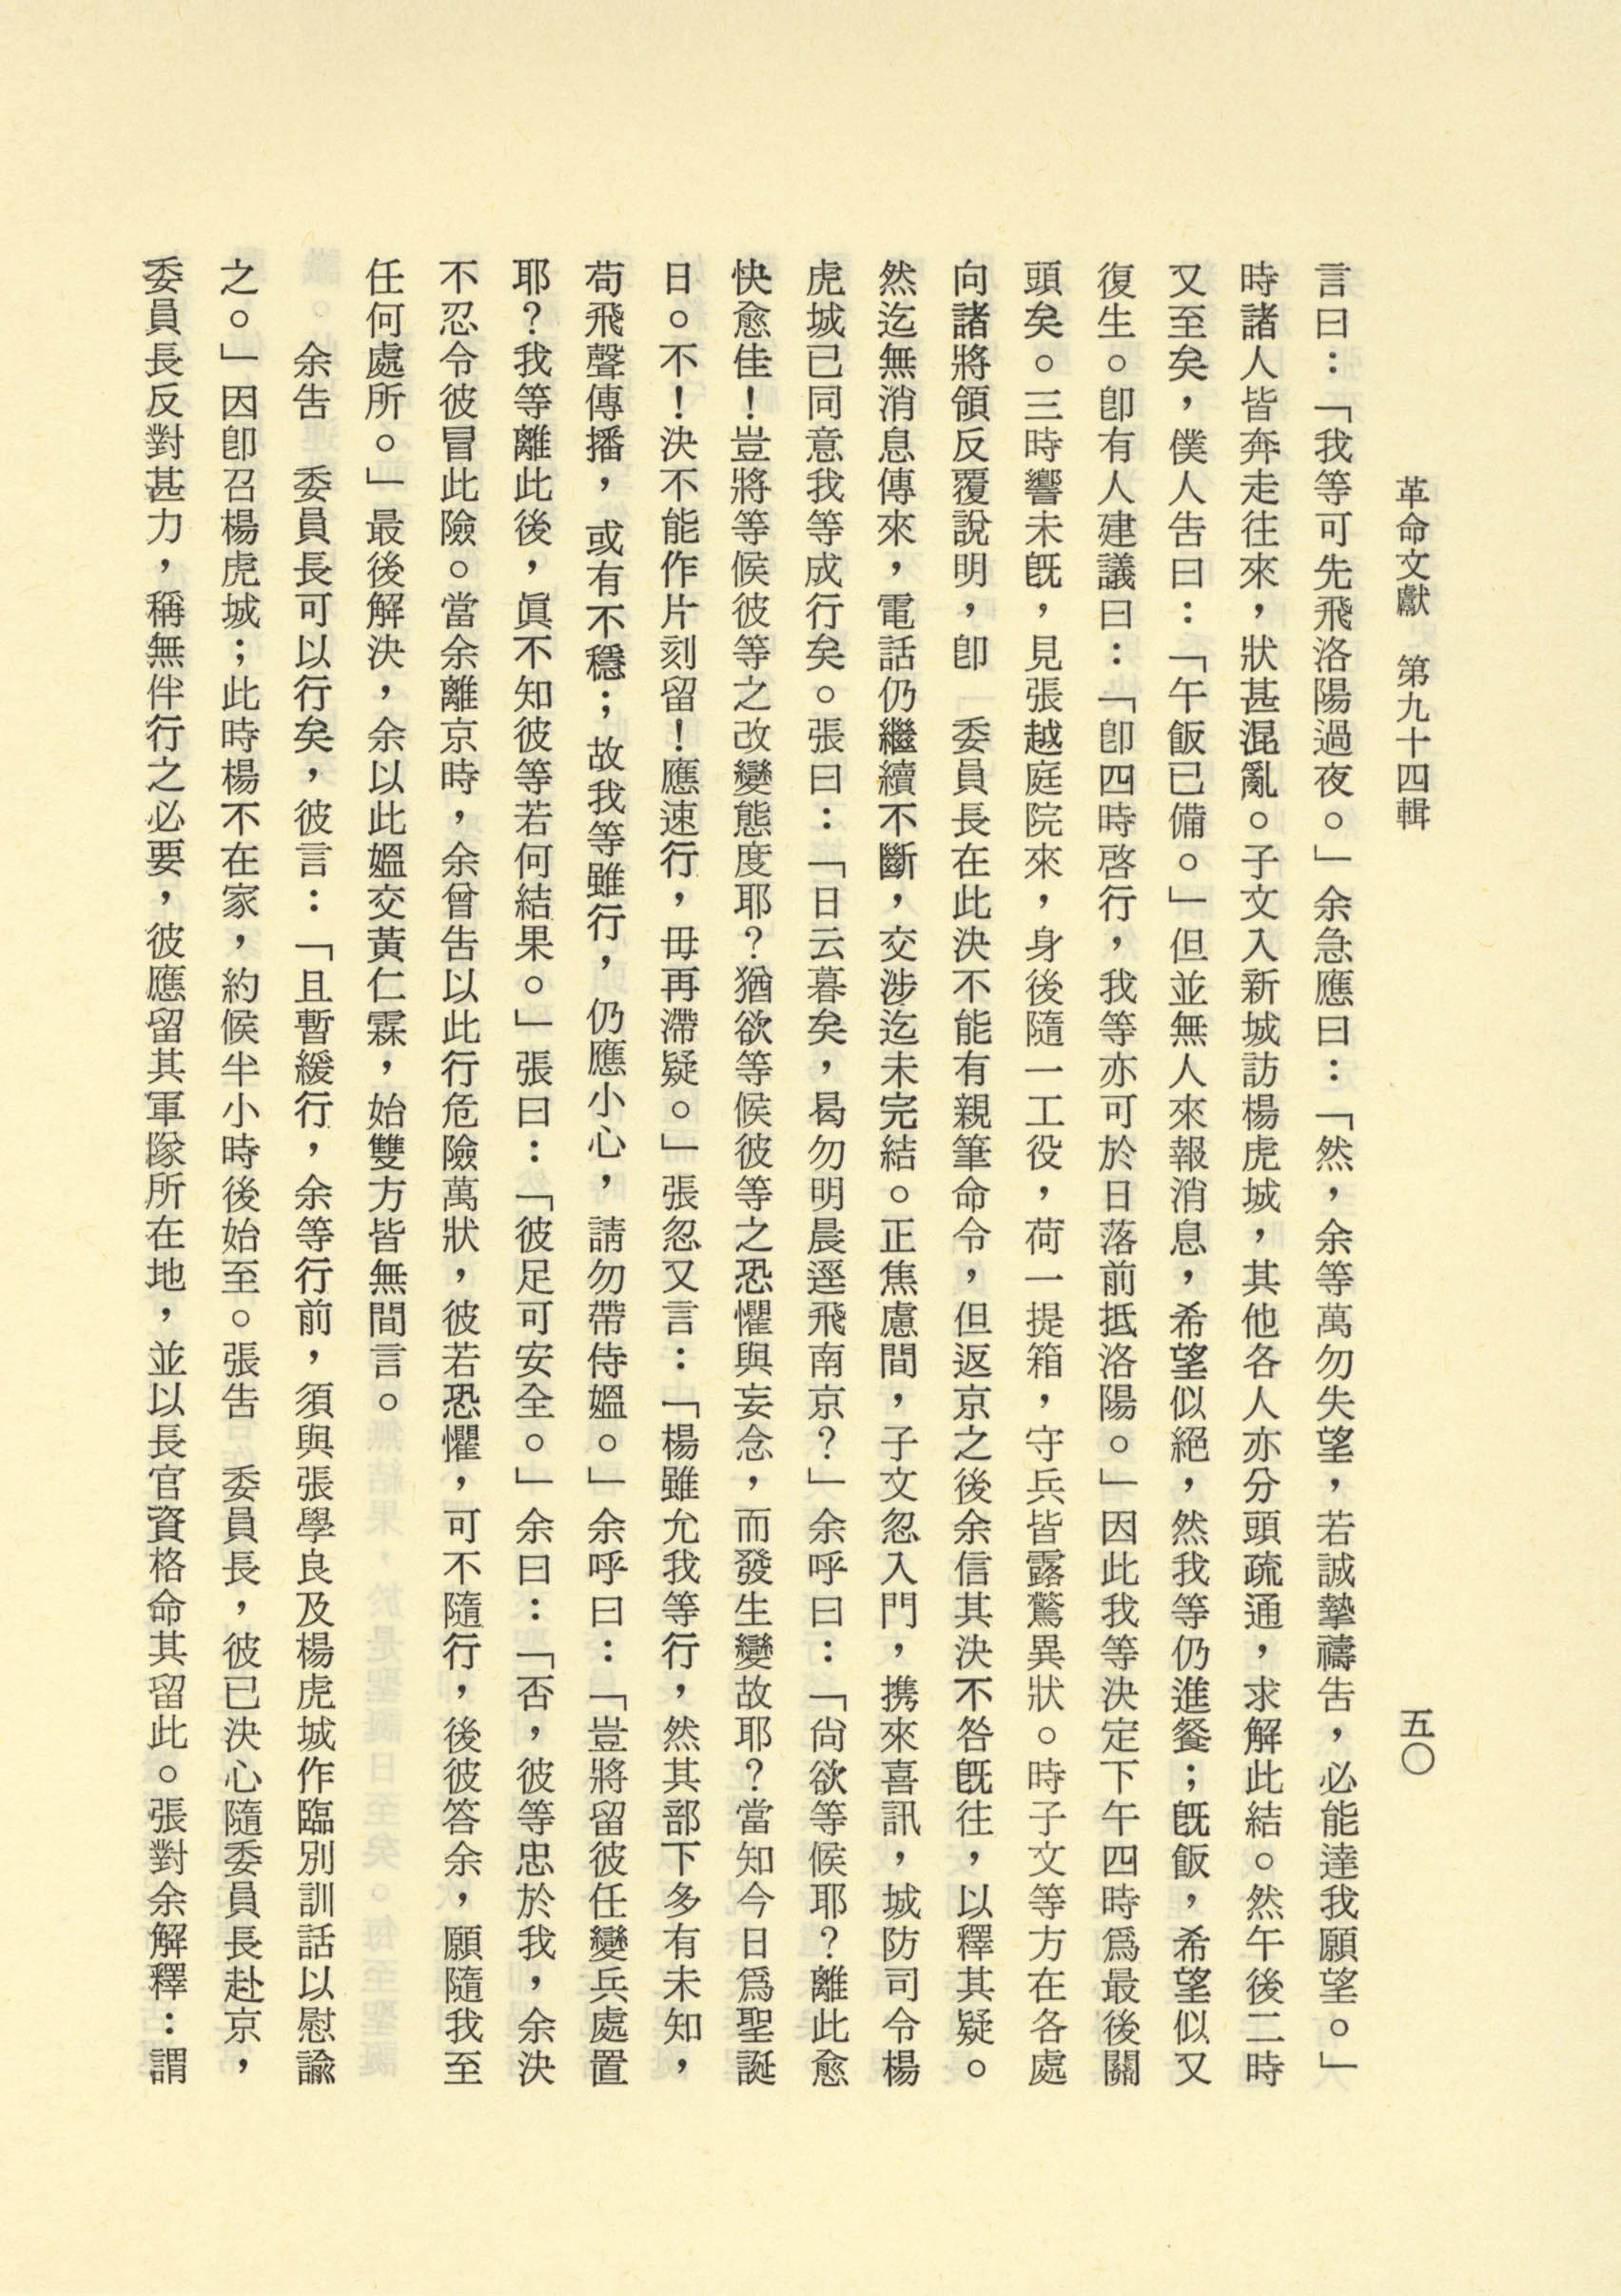 革命文獻　第九十四輯　五〇
言曰：「我等可先飛洛陽過夜。」余急應曰：「然，余等萬勿失望，若誠摯禱吿，必能達我願望。」
時諸人皆奔走往來，狀甚混亂。子文入新城訪楊虎城，其他各人亦分頭疏通，求解此結。然午後二時
又至矣，僕人吿曰：「午飯已備。」但並無人來報消息，希望似絕，然我等仍進餐；旣飯，希望似又
復生。卽有人建議曰：「卽四時啓行，我等亦可於日落前抵洛陽。」因此我等決定下午四時爲最後關
頭矣。三時響未旣，見張越庭院來，身後隨一工役，荷一提箱，守兵皆露驚異狀。時子文等方在各處
向諸將領反覆說明，卽　委員長在此決不能有親筆命令，但返京之後余信其決不咎旣往，以釋其疑。
然迄無消息傳來，電話仍繼續不斷，交涉迄未完結。正焦慮間，子文忽入門，携來喜訊，城防司令楊
虎城已同意我等成行矣。張曰：「日云暮矣，曷勿明晨逕飛南京？」余呼曰：「尙欲等候耶？離此愈
快愈佳！豈將等候彼等之改變態度耶？猶欲等候彼等之恐懼與妄念，而發生變故耶？當知今日爲聖誕
日。不！決不能作片刻留！應速行，毋再滯疑。」張忽又言：「楊雖允我等行，然其部下多有未知，
苟飛聲傳播，或有不穩；故我等雖行，仍應小心，請勿帶侍媼。」余呼曰：「豈將留彼任變兵處置
耶？我等離此後，眞不知彼等若何結果。」張曰：「彼足可安全。」余曰：「否，彼等忠於我，余決
不忍令彼冒此險。當余離京時，余曾吿以此行危險萬狀，彼若恐懼，可不隨行，後彼答余，願隨我至
任何處所。」最後解決，余以此媼交黃仁霖，始雙方皆無間言。
余吿　委員長可以行矣，彼言：「且暫緩行，余等行前，須與張學良及楊虎城作臨別訓話以慰諭
之。」因卽召楊虎城；此時楊不在家，約候半小時後始至。張吿　委員長，彼已決心隨委員長赴京，
委員長反對甚力，稱無伴行之必要，彼應留其軍隊所在地，並以長官資格命其留此。張對余解釋：謂